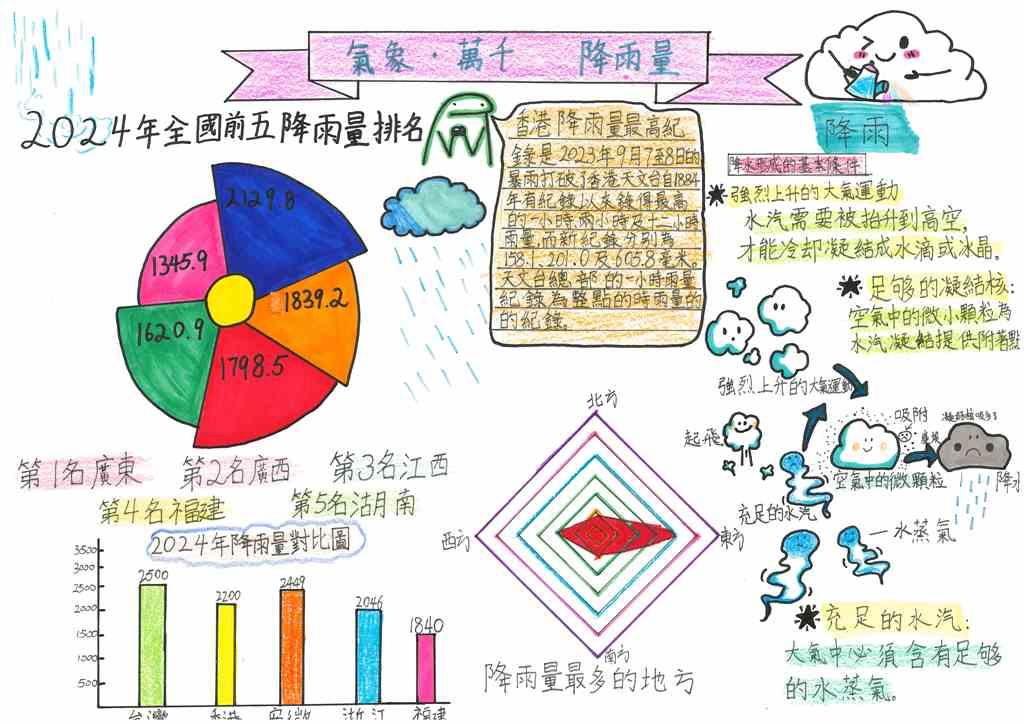 氣象·萬千 降雨量
2024年全國前五降雨量排名
2129.8
1345.9
1839.2
1620.9
1798.5
第1名廣東 第2名廣西 第3名江西
第4名福建 第5名湖南
香港降雨量最高紀
錄是2023年9月7至8日的
暴雨打破了香港天文台自1884
年有紀錄以來錄得最高
的一小時兩小時及十二小時
雨量,而新紀錄分別為
158.1、201.0及605.8毫米。
天文台總部的一小時雨量
紀錄為整點的時雨量的
的紀錄。
降雨
降水形成的基本條件
強烈上升的大氣運動
水汽需要被抬升到高空,
才能冷却凝結成水滴或冰晶。
足够的凝結核:
空氣中的微小顆粒為
水汽凝結提供附著點
強烈上升的大氣運動
起飛
吸附
空氣中的微顆粒
降水
充足的水汽
水蒸氣
充足的水汽:
大氣中必須含有足够
的水蒸氣。
2024年降雨量對比圖
3500
3000
2500
2000
1500
1000
500
2500
2200
2449
2046
1840
台灣 香港 安徽 浙江 福建
北方
西方
東方
南方
降雨量最多的地方